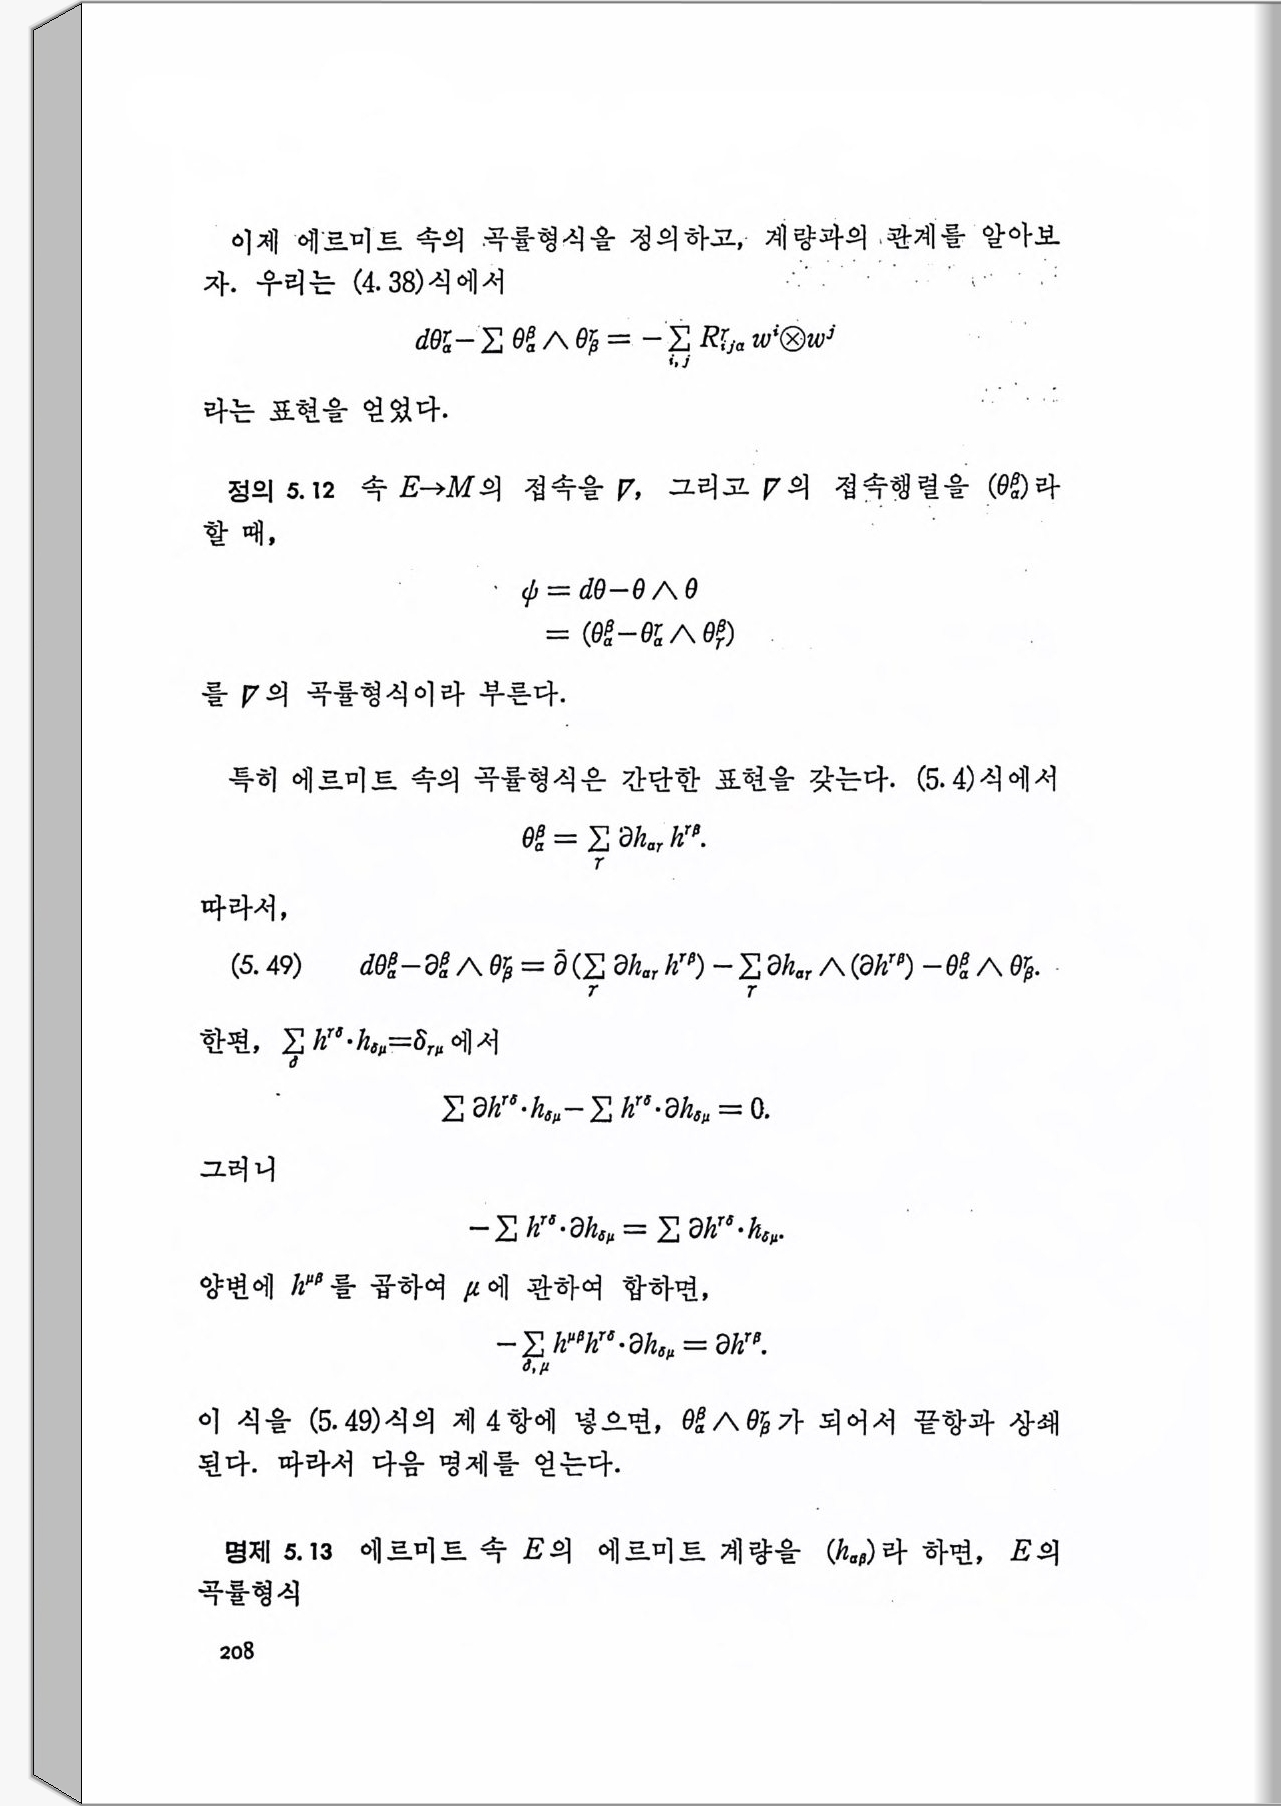 이제 에르미트 속의 곡률형식을 정의하고, 계량과의 관계를 알아보
자. 우리는 (4.38)식에서
dθᵞ_α − Σ θᵝ_α ∧ θᵞ_β = − Σ_{i,j} Rᵞ_{ijα} wⁱ⊗wʲ
라는 표현을 얻었다.
정의 5.12 속 E→M의 접속을 ∇, 그리고 ∇의 접속행렬을 (θᵝ_α)라
할 때,
ψ = dθ−θ∧θ
= (θᵝ_α−θᵞ_α∧θᵝ_γ)
를 ∇의 곡률형식이라 부른다.
특히 에르미트 속의 곡률형식은 간단한 표현을 갖는다. (5.4)식에서
θᵝ_α = Σ_γ ∂h_{αγ} h^{γβ}.
따라서,
(5.49) dθᵝ_α−∂ᵝ_α∧θᵞ_β = ∂̄(Σ_γ ∂h_{αγ} h^{γβ}) − Σ_γ ∂h_{αγ}∧(∂h^{γβ}) −θᵝ_α∧θᵞ_β.
한편, Σ_δ h^{γδ}·h_{δμ}=δ_{γμ}에서
Σ ∂h^{γδ}·h_{δμ}− Σ h^{γδ}·∂h_{δμ} = 0.
그러니
− Σ h^{γδ}·∂h_{δμ} = Σ ∂h^{γδ}·h_{δμ}.
양변에 h^{μβ}를 곱하여 μ에 관하여 합하면,
− Σ_{δ,μ} h^{μβ}h^{γδ}·∂h_{δμ} = ∂h^{γβ}.
이 식을 (5.49)식의 제 4항에 넣으면, θᵝ_α∧θᵞ_β가 되어서 끝항과 상쇄
된다. 따라서 다음 명제를 얻는다.
명제 5.13 에르미트 속 E의 에르미트 계량을 (h_{αβ})라 하면, E의
곡률형식
208